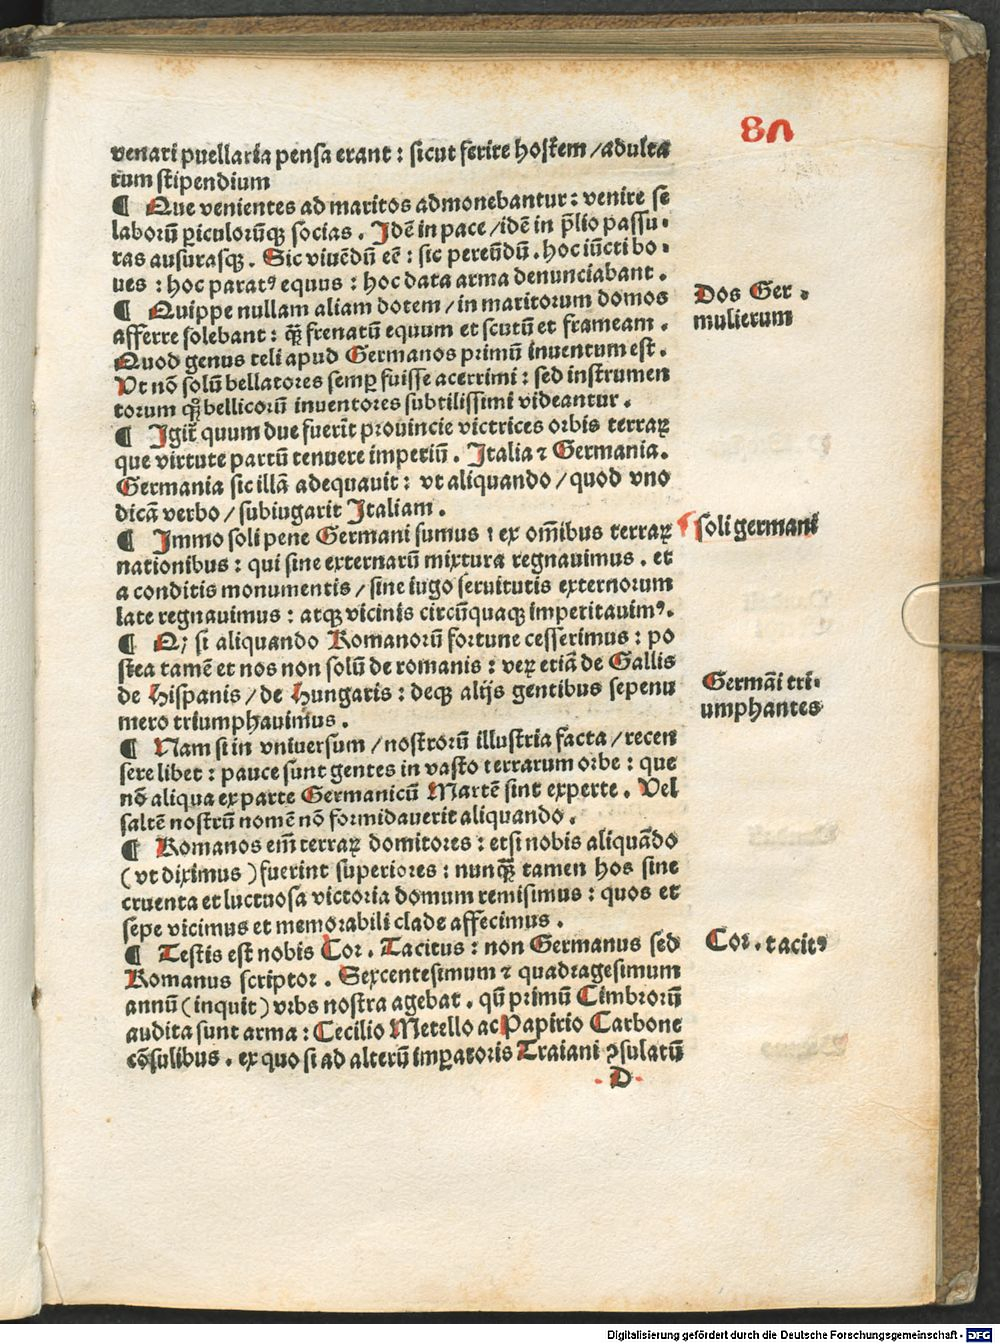 87
venari puellaria pensa erant : sicut ferire hostem / adulta
rum stipendium
¶ Que venientes ad maritos admonebantur : venire se
laborū ꝑiculorūqꝫ socias . Idē in pace / idē in p̄lio passu-
ras ausurasqꝫ . Sic viuēdū eē : sic pereūdū . hoc iūcti bo-
ues : hoc paratꝰ equus : hoc data arma denunciabant .
¶ Quippe nullam aliam dotem / in maritorum domos
afferre solebant : qꝫ̄ frenatū equum et scutū et frameam .
Quod genus teli apud Germanos primū inuentum est .
Ut nō solū bellatores semꝑ fuisse acerrimi : sed instrumen
torum qꝫ bellicorū inuentores subtilissimi videantur .
¶ Igit̄ quum due fuerīt prouincie victrices orbis terraꝝ
que virtute partū tenuere imperiū . Italia ⁊ Germania .
Germania sic illā adequauit : vt aliquando / quod vno
dicā verbo / subiugarit Italiam .
¶ Immo soli pene Germani sumus : ex om̄ibus terraꝝ
nationibus : qui sine externarū mixtura regnauimus . et
a conditis monumentis / sine iugo seruitutis externorum
late regnauimus : atqꝫ vicinis circūquaqꝫ imperitauimꝰ .
¶ Qꝫ si aliquando Romanorū fortune cesserimus : po
stea tamē et nos non solū de romanis : veꝝ etiā de Gallis
de Hispanis / de Hungaris : deqꝫ alijs gentibus sepenu
mero triumphauimus .
¶ Nam si in vniuersum / nostrorū illustria facta / recen
sere libet : pauce sunt gentes in vasto terrarum orbe : que
nō aliqua ex parte Germanicū Martē sint experte . Vel
saltē nostrū nomē nō formidauerit aliquando .
¶ Romanos em̄ terraꝝ domitores : etsi nobis aliquādo
( vt diximus ) fuerint superiores : nunqꝫ̄ tamen hos sine
cruenta et luctuosa victoria domum remisimus : quos et
sepe vicimus et memorabili clade affecimus .
¶ Testis est nobis Cor . Tacitus : non Germanus sed
Romanus scriptor . Sexcentesimum ⁊ quadragesimum
annū ( inquit ) vrbs nostra agebat . qū primū Cimbrorū
audita sunt arma : Cecilio Metello ac Papirio Carbone
cōsulibus . ex quo si ad alterū imꝑatoris Traiani ꝯsulatū
D
Dos Ger-
mulierum
soli germani
Germāi tri-
umphantes
Cor . tacitꝰ
Digitalisierung gefördert durch die Deutsche Forschungsgemeinschaft - DFG